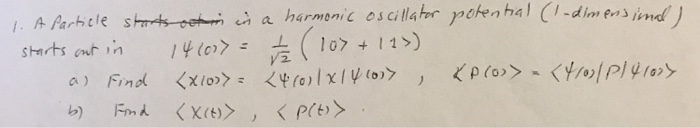 1. A Particle starts out in in a harmonic oscillator potential (1-dimensional)
starts out in |ψ(0)> = 1/√2 ( |0> + |1>)
a) Find <x(0)> = <ψ(0)|x|ψ(0)> , <p(0)> = <ψ(0)|P|ψ(0)>
b) Find <x(t)> , <P(t)> .